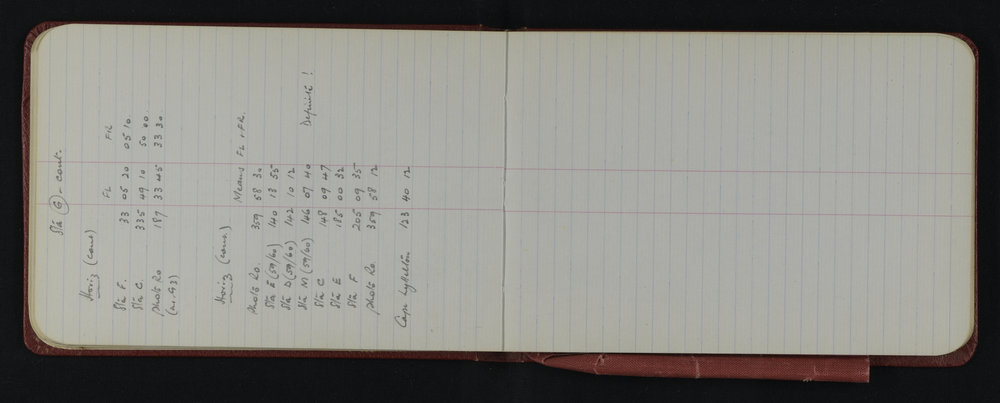 Stn (G) - cont.
Horiz (cons)
FL FR
Stn F. 33 05 20 05 10
Stn C. 335 49 10 50 00.
Photo Ro 187 33 45 33 30
Horiz (cons.) Means FL + FR.
Photo Ro. 359 58 30
Stn E (59/60) 140 13 55
Stn D (59/60) 142 10 12
Stn M (59/60) 146 07 40 Definite!
Stn C 148 09 47
Stn E 185 00 32
Stn F 205 09 35
Photo Ro. 359 58 12
Cape 123 40 12